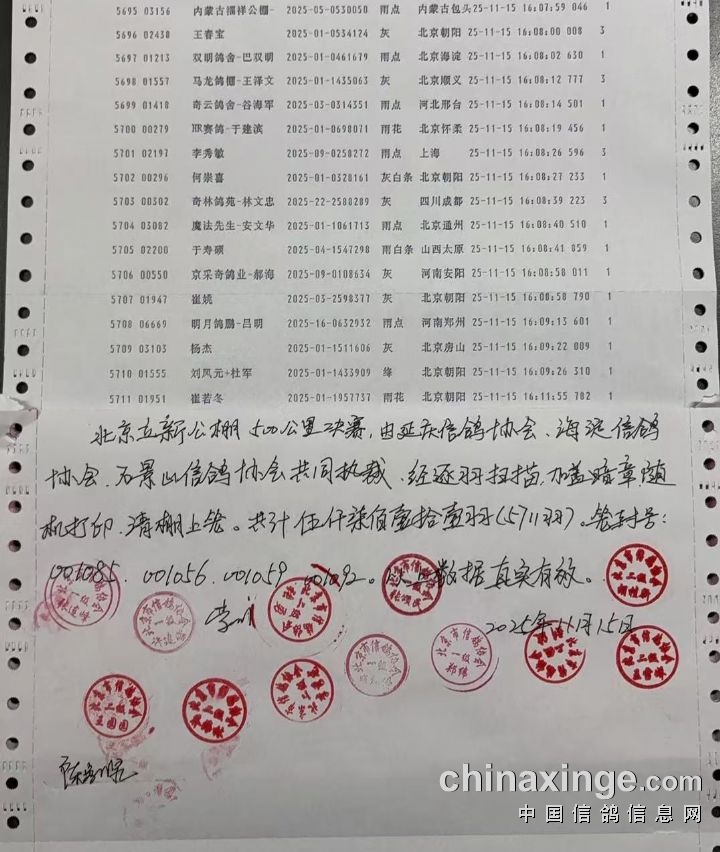 5695 03156 内蒙古福祥公棚- 2025-05-0530050 雨点 内蒙古包头 25-11-15 16:07:59 046 1
5696 02438 王春宝 2025-01-0534124 灰 北京朝阳 25-11-15 16:08:00 008 3
5697 01213 双明鸽舍-巴双明 2025-01-0461679 雨点 北京海淀 25-11-15 16:08:02 630 1
5698 01557 马龙鸽棚-王泽文 2025-01-1435063 灰 北京顺义 25-11-15 16:08:12 777 3
5699 01418 奇云鸽舍-谷海军 2025-03-0314351 雨点 河北邢台 25-11-15 16:08:14 501 1
5700 00279 HR赛鸽-于建滨 2025-01-0698071 雨花 北京怀柔 25-11-15 16:08:19 456 1
5701 02197 李秀敏 2025-09-0258272 雨点 上海 25-11-15 16:08:26 596 3
5702 00296 何崇喜 2025-01-0328161 灰白条 北京朝阳 25-11-15 16:08:27 233 1
5703 00302 奇林鸽苑-林文忠 2025-22-2588289 灰 四川成都 25-11-15 16:08:39 223 3
5704 03082 魔法先生-安文华 2025-01-1061713 雨点 北京通州 25-11-15 16:08:40 510 1
5705 02200 于寿硕 2025-04-1547298 雨白条 山西太原 25-11-15 16:08:41 859 1
5706 00550 京采奇鸽业-郝海 2025-09-0108634 灰 河南安阳 25-11-15 16:08:58 011 1
5707 01947 崔娆 2025-03-2598377 灰 北京朝阳 25-11-15 16:08:58 790 1
5708 06669 明月鸽鹏-吕明 2025-16-0632932 雨点 河南郑州 25-11-15 16:09:13 601 1
5709 03103 杨杰 2025-01-1511606 灰 北京房山 25-11-15 16:09:22 009 1
5710 01555 刘凤元+杜军 2025-01-1433909 绛 北京朝阳 25-11-15 16:09:26 310 1
5711 01951 崔若冬 2025-01-1957737 雨花 北京朝阳 25-11-15 16:11:55 782 1
北京立新公棚500公里决赛,由延庆信鸽协会、海淀信鸽
协会、石景山信鸽协会共同执裁,经逐羽扫描,加盖暗章,随
机打印,清棚上笼。共计伍仟柒佰壹拾壹羽(5711羽)。笼封号:
001085、001056、001059、001092。以上数据真实有效。
2025年11月15日
北京市信鸽协会 一级
北京市信鸽协会 一级 郑伟
北京市信鸽协会 二级 王圆圆
chinaxinge.com
中国信鸽信息网